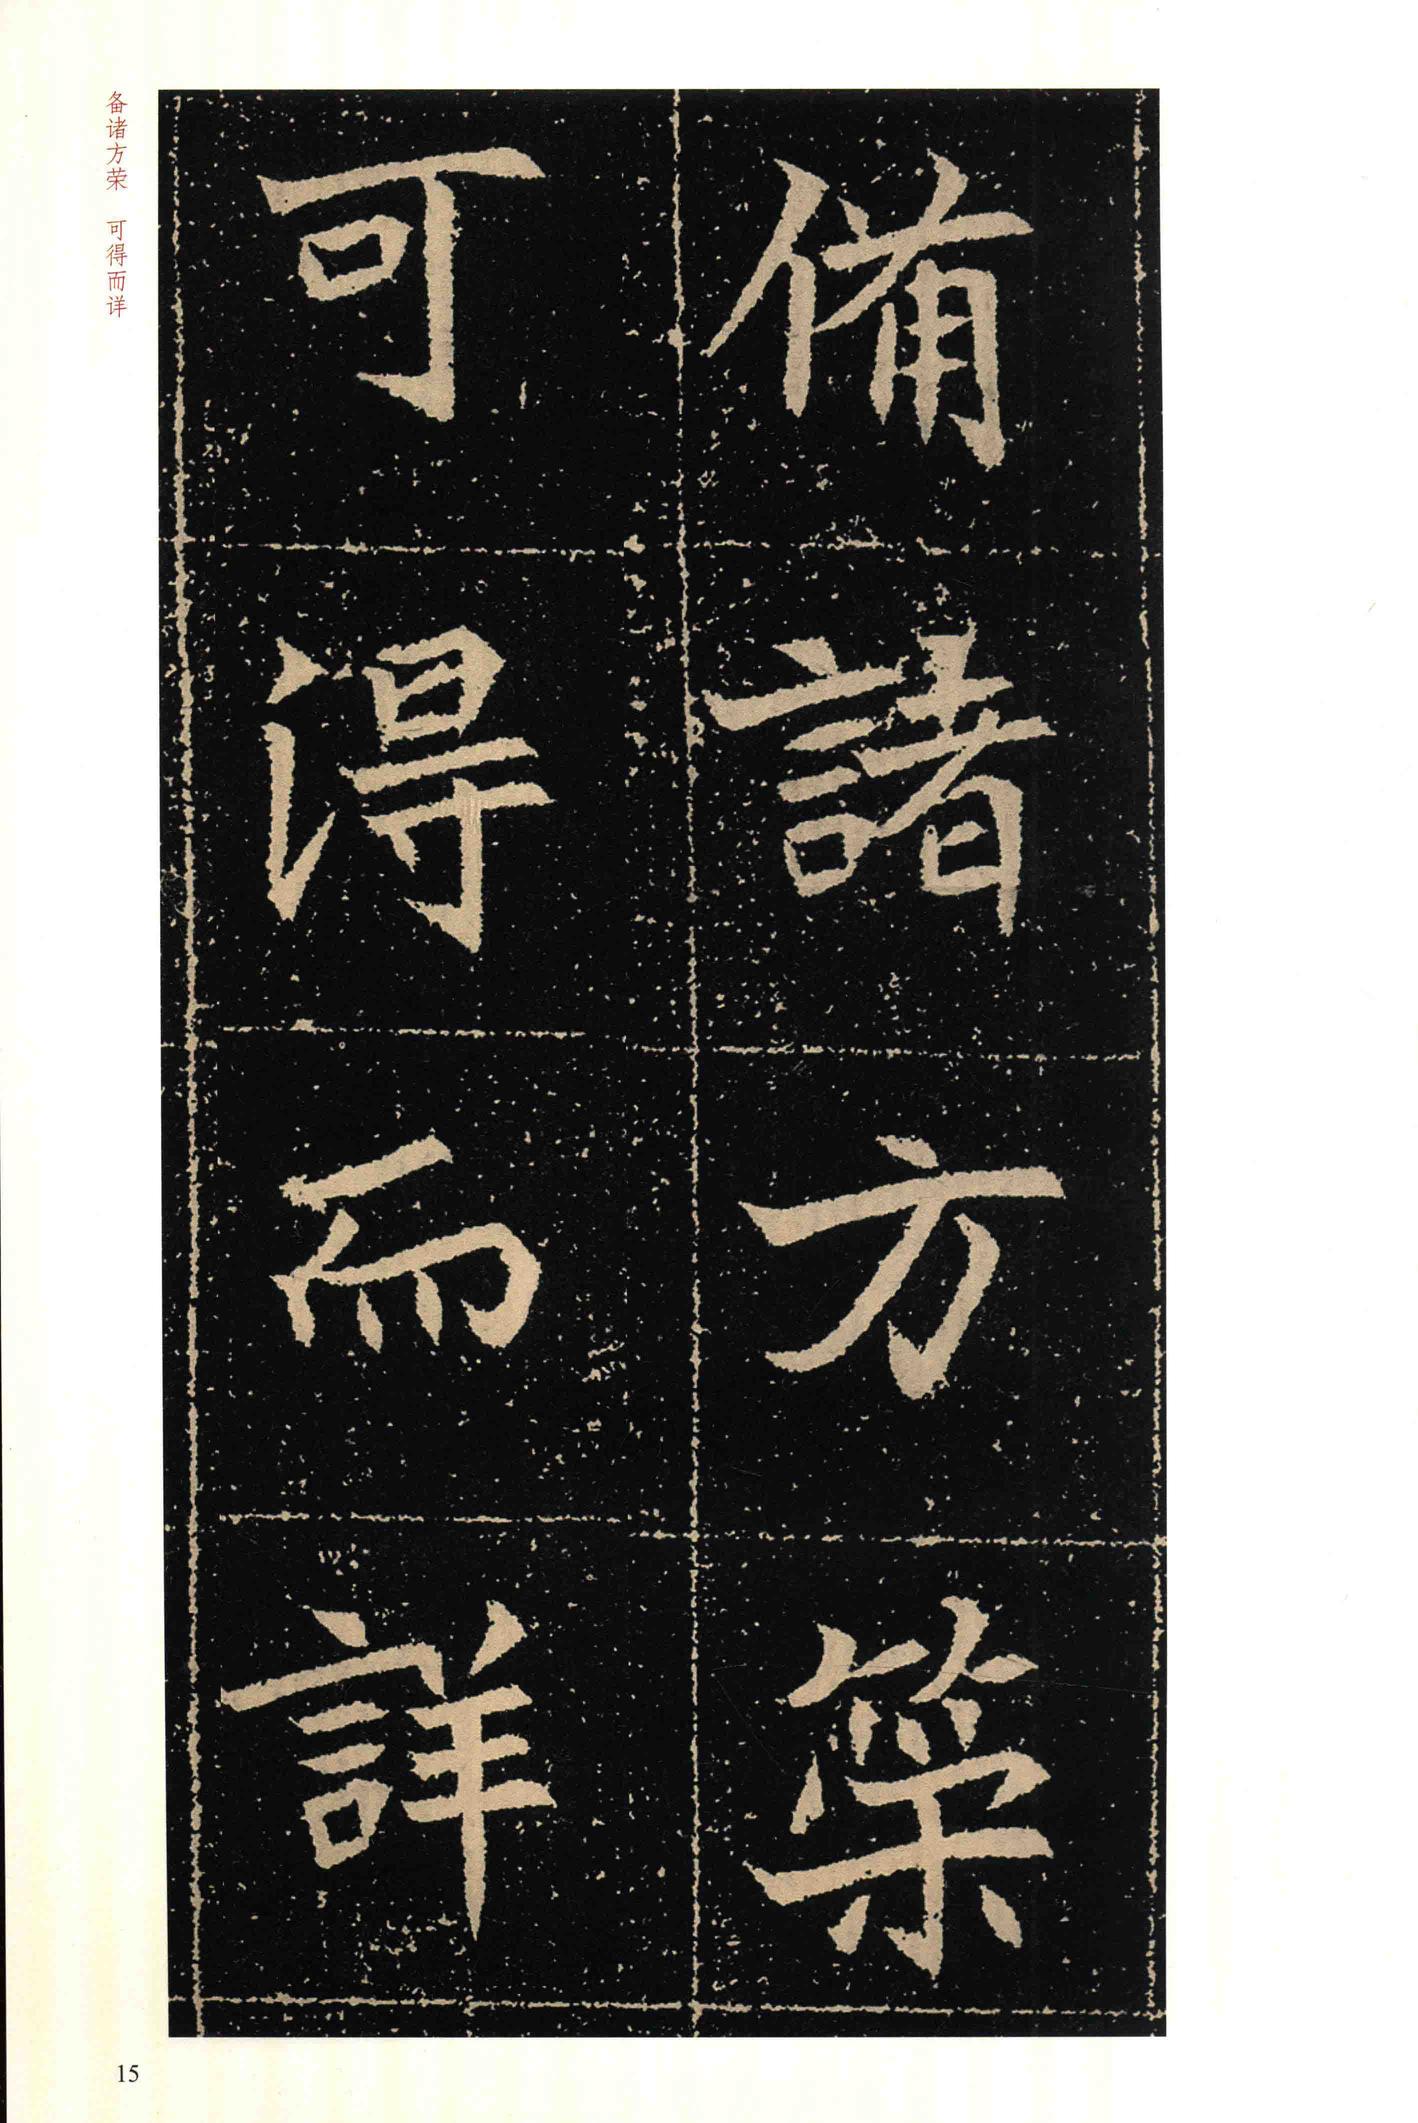 備諸方策
可得而詳
备诸方荣 可得而详
15